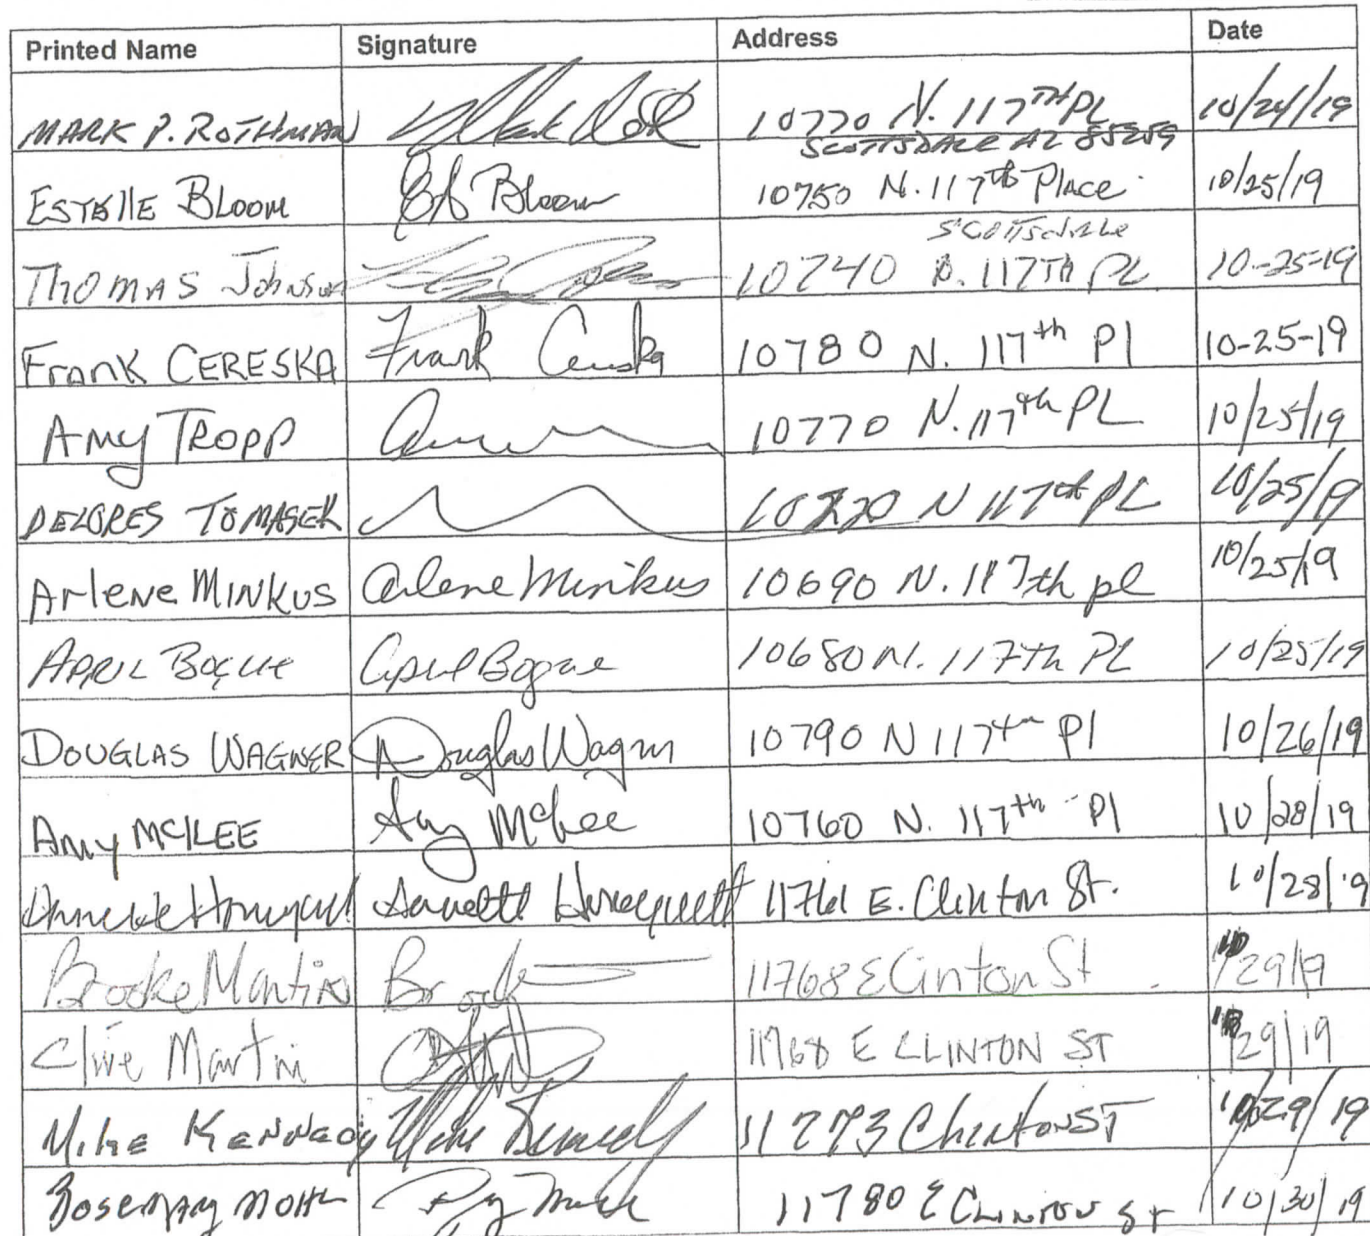 Printed Name Signature Address Date
MARK P. ROTHMAN 10770 N. 117TH PL 10/24/19
SCOTTSDALE AZ 85259
ESTEllE BLOOM Bloom 10750 N. 117th Place 10/25/19
SCOTTSdale
THOMAS Johnson 10740 N. 117TH PL 10-25-19
FranK CERESKA Frank Cereska 10780 N. 117th Pl 10-25-19
Amy TROPP 10770 N. 117th PL 10/25/19
DELORES TOMASEK N 117th PL 10/25/19
Arlene MINKUS Arlene Minkus 10690 N. 117th pl 10/25/19
APRIL BOGUE April Bogue 10680 N. 117Th PL 10/25/19
DOUGLAS WAGNER Douglas Wagner 10790 N 117th Pl 10/26/19
Amy MCILEE Amy 10760 N. 117th Pl 10/28/19
E. Clinton St. 10/28/19
Brooke Martin Brooke 11768 E Clinton St 10/29/19
Clive Martin 11768 E CLINTON ST 10/29/19
MIKE KENNEDY Mike Kennedy Clinton ST 10/29/19
Rosemary 11780 E CLINTON St 10/30/19